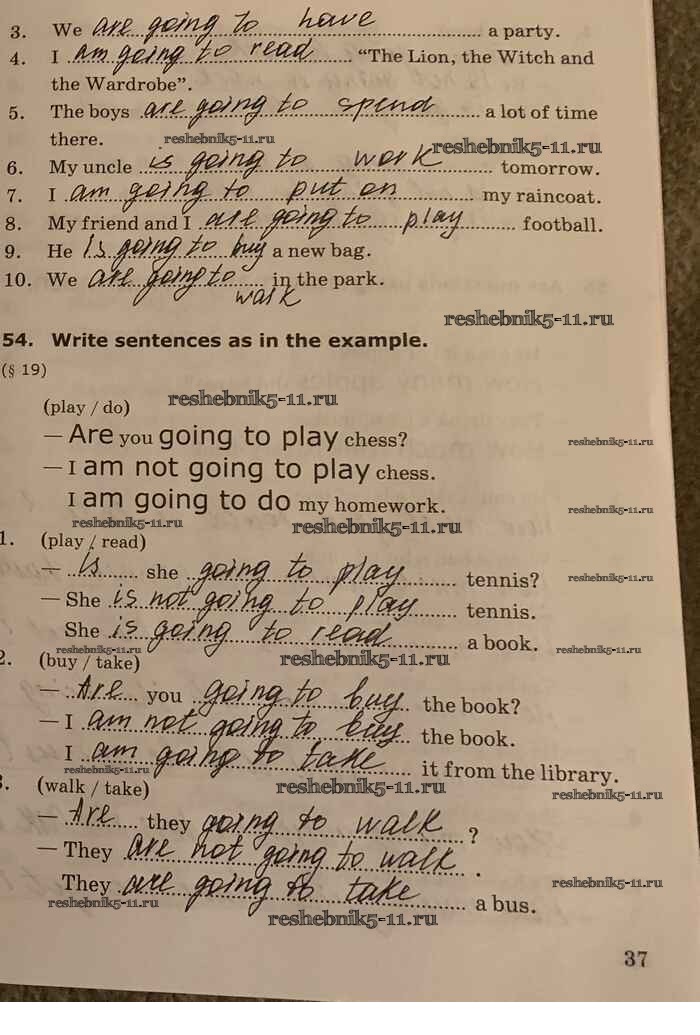 3. We are going to have a party.
4. I am going to read "The Lion, the Witch and
the Wardrobe".
5. The boys are going to spend a lot of time
there. reshebnik5-11.ru reshebnik5-11.ru
6. My uncle is going to work tomorrow.
7. I am going to put on my raincoat.
8. My friend and I are going to play football.
9. He is going to buy a new bag.
10. We are going to in the park.
walk
reshebnik5-11.ru
54. Write sentences as in the example.
(§ 19)
reshebnik5-11.ru
(play / do)
— Are you going to play chess? reshebnik5-11.ru
— I am not going to play chess.
I am going to do my homework. reshebnik5-11.ru
reshebnik5-11.ru reshebnik5-11.ru
1. (play / read)
— Is she going to play tennis? reshebnik5-11.ru
— She is not going to play tennis.
She is going to read a book.
reshebnik5-11.ru reshebnik5-11.ru reshebnik5-11.ru
2. (buy / take)
— Are you going to buy the book?
— I am not going to buy the book.
I am going to take it from the library.
reshebnik5-11.ru reshebnik5-11.ru reshebnik5-11.ru
3. (walk / take)
— Are they going to walk ?
— They are not going to walk .
They are going to take a bus. reshebnik5-11.ru
reshebnik5-11.ru reshebnik5-11.ru
37